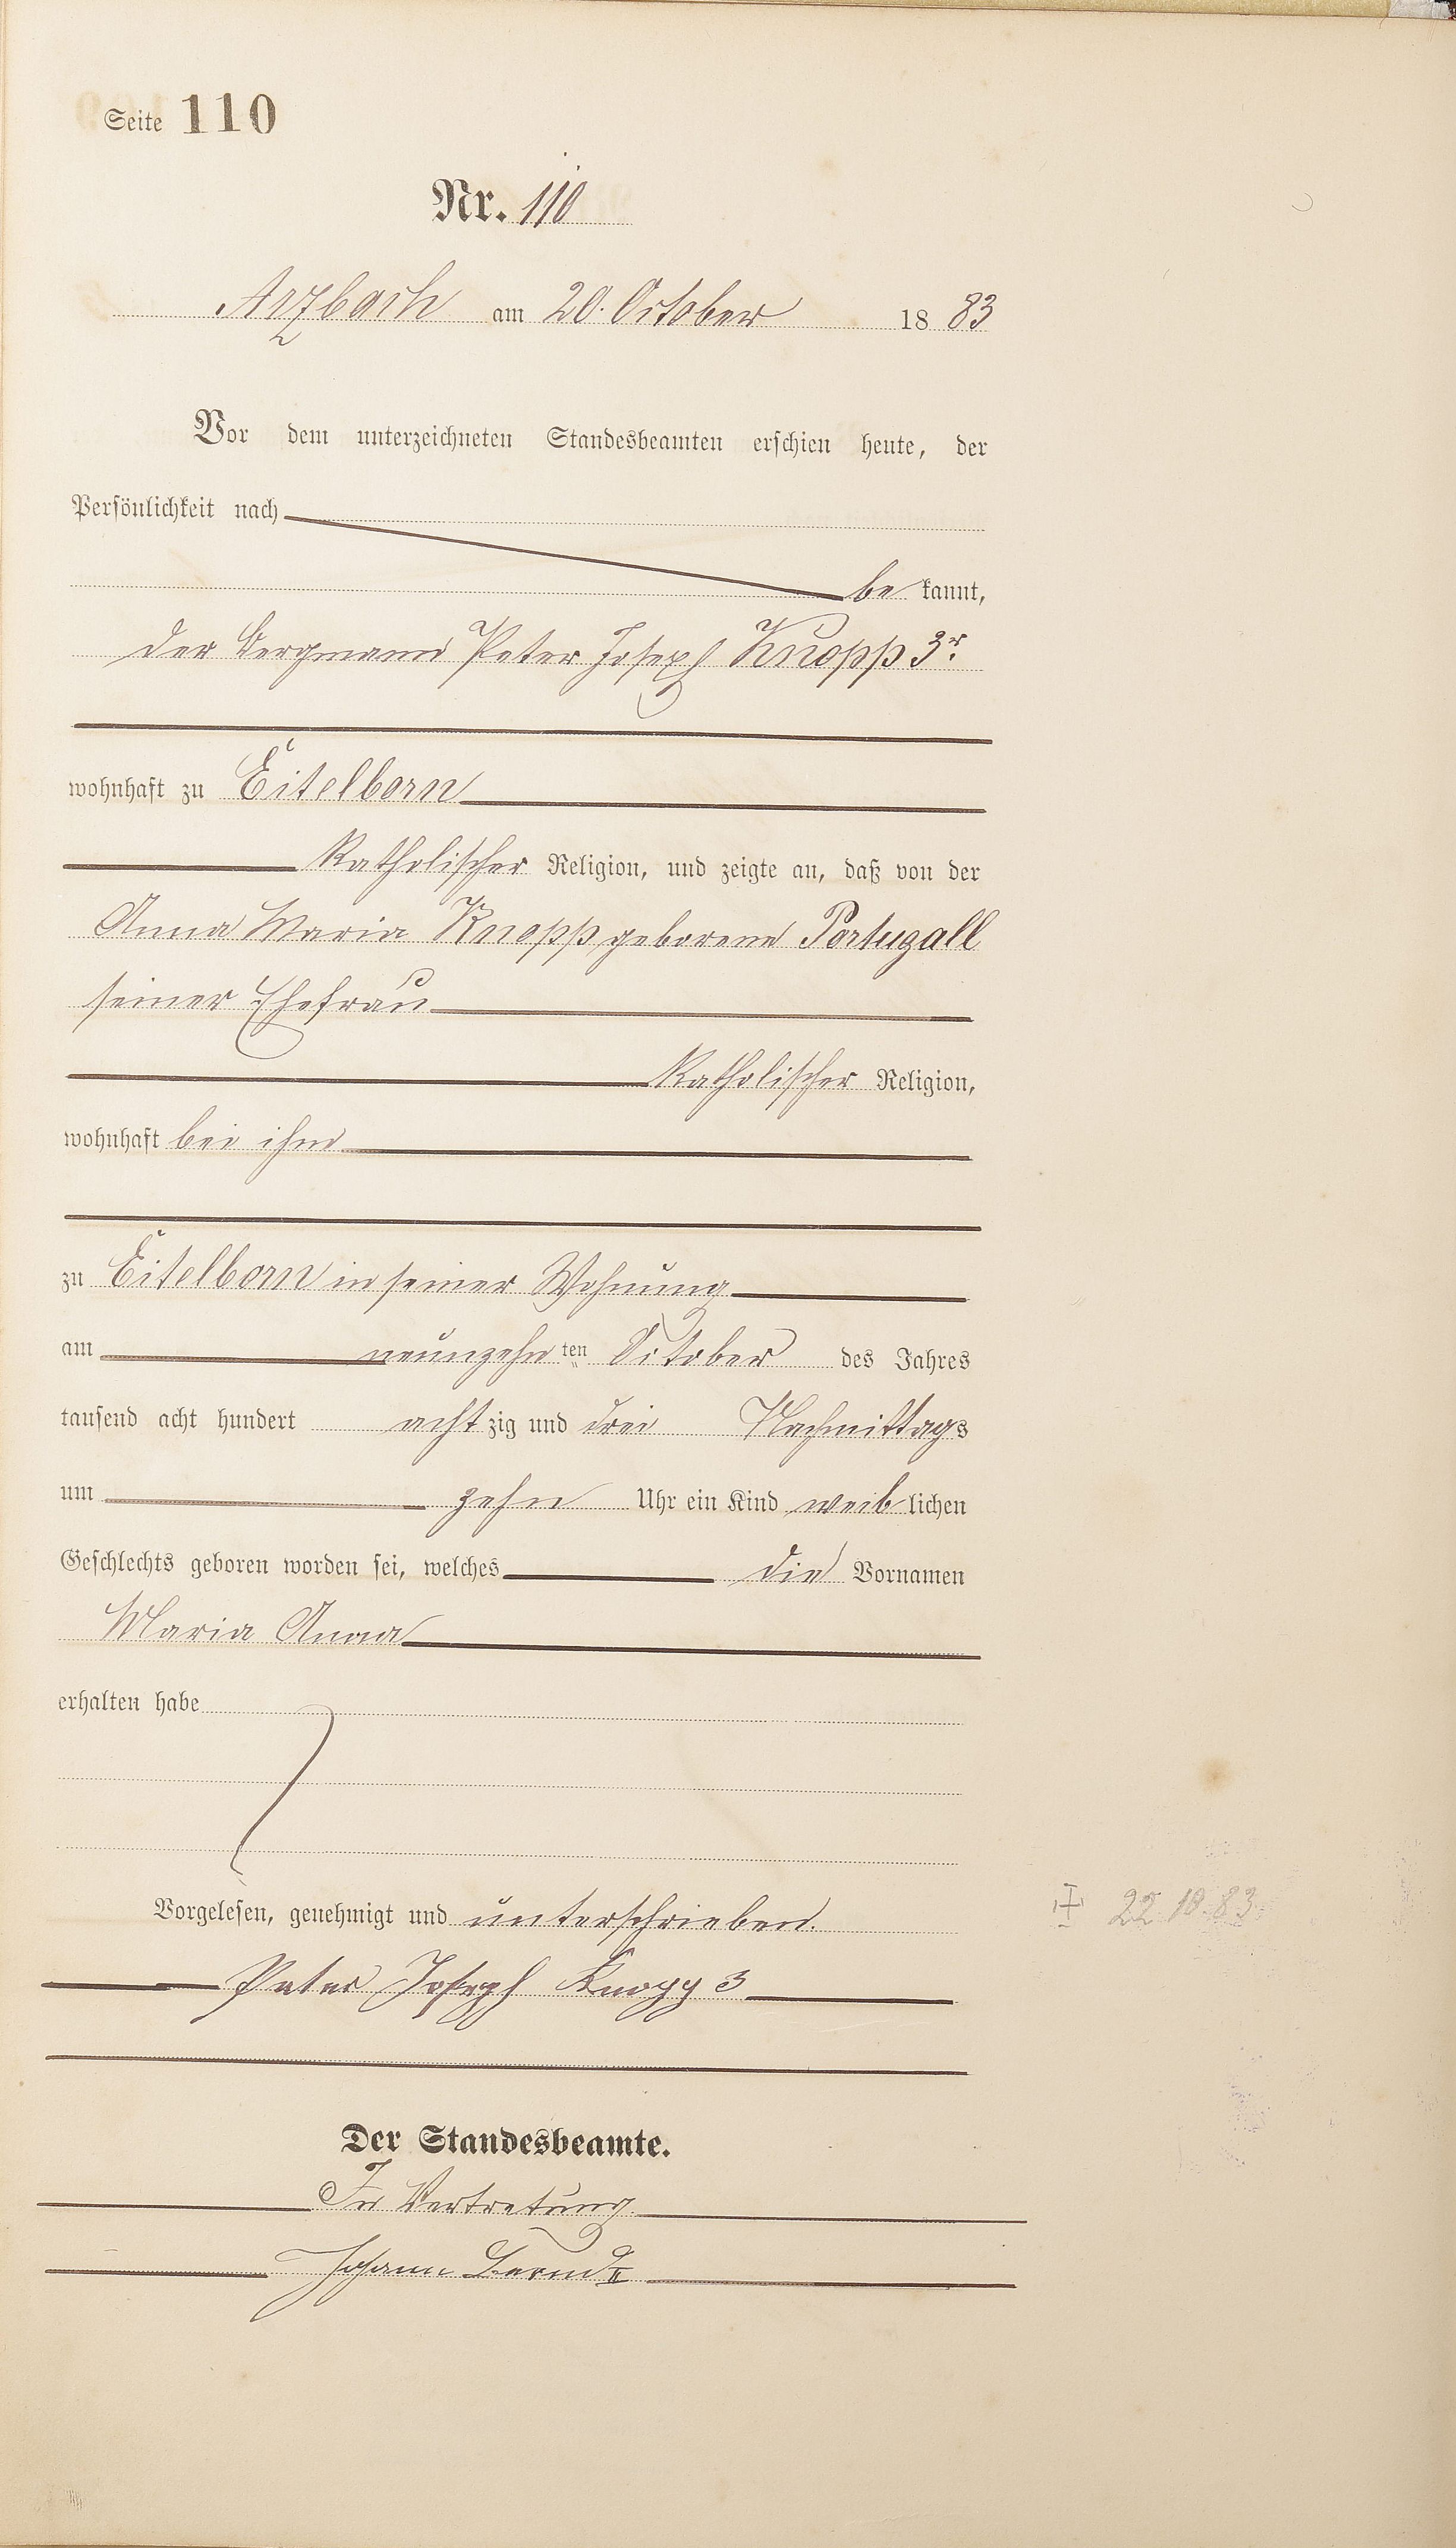 Seite 110
Nr. 110
Arzbach am 20. October 1883
Vor dem unterzeichneten Standesbeamten erschien heute, der
Persönlichkeit nach
be kannt,
der Bergmann Peter Joseph Knopp 3r.
wohnhaft zu Eitelborn
Katholischer Religion, und zeigte an, daß von der
Anna Maria Knopp geborene Portugall
seiner Ehefrau
Katholischer Religion,
wohnhaft bei ihm
zu Eitelborn in seiner Wohnung
am neunzehn ten October des Jahres
tausend acht hundert acht zig und drei Nachmittags
um zehn Uhr ein Kind weib lichen
Geschlechts geboren worden sei, welches die Vornamen
Maria Anna
erhalten habe
Vorgelesen, genehmigt und unterschrieben.
Peter Joseph Knopp 3
Der Standesbeamte.
In Vertretung.
Johann II
+ 22.10.83.